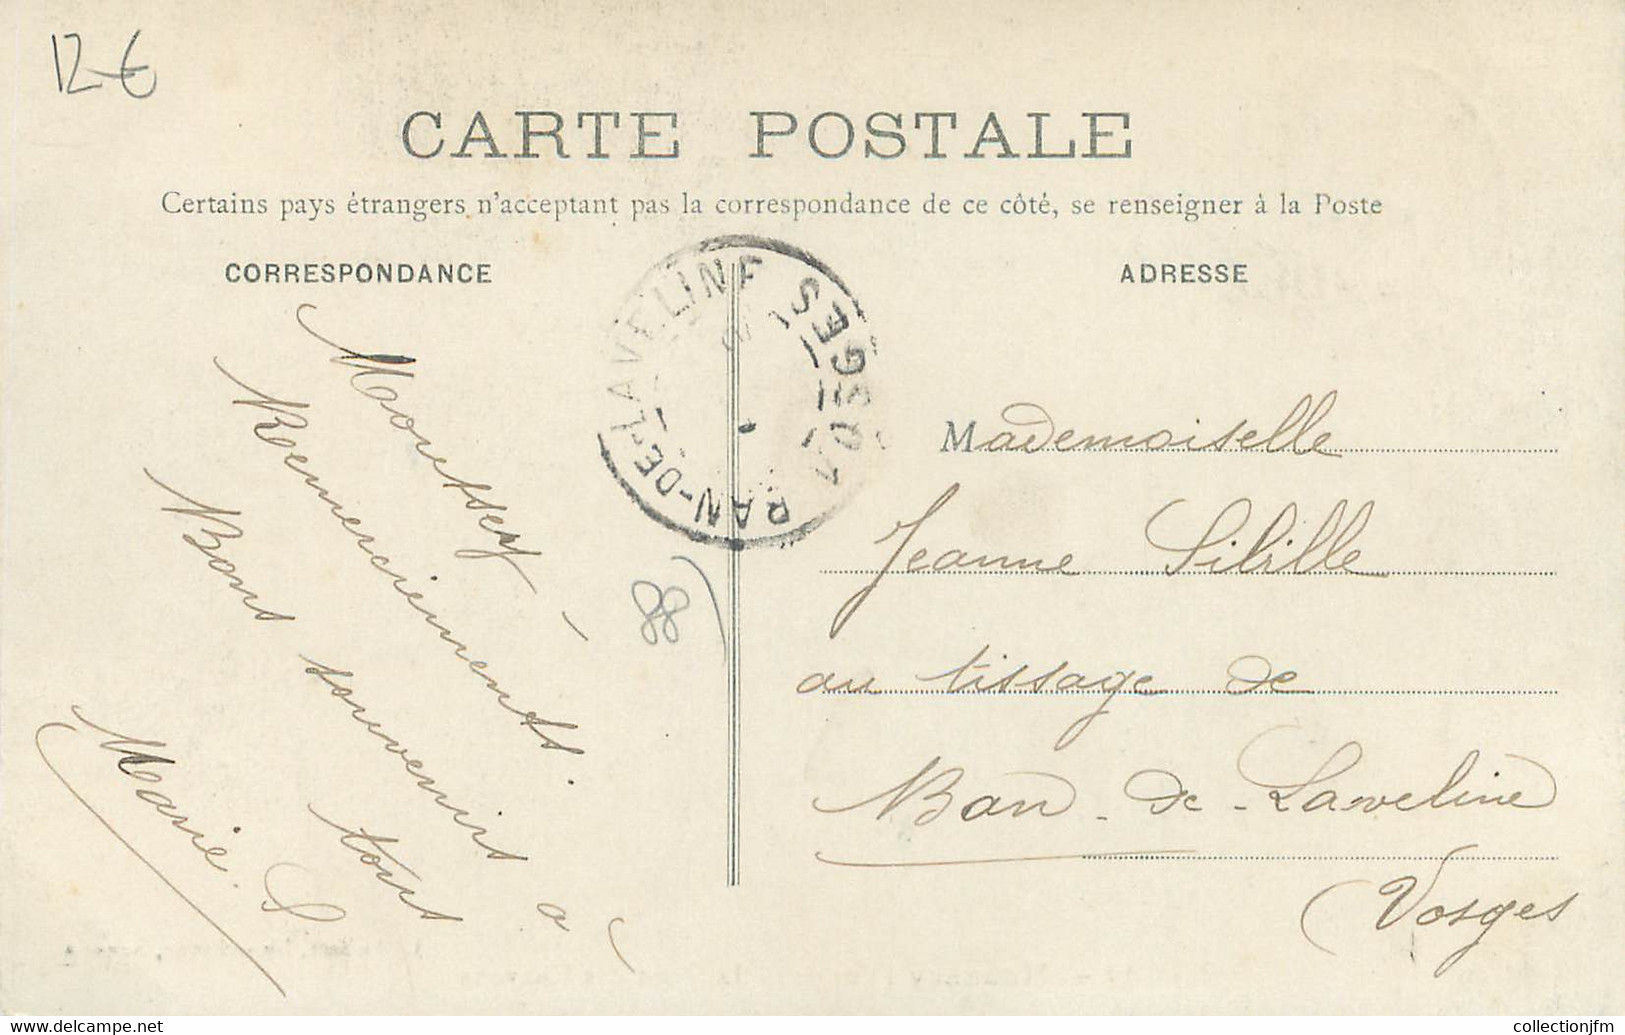 12 €
CARTE POSTALE
Certains pays étrangers n'acceptant pas la correspondance de ce côté, se renseigner à la Poste
CORRESPONDANCE
Moussey -
Remerciements.
Bons souvenirs à
tous
Marie. S
BAN-DE-LAVELINE VOSGES
88
ADRESSE
Mademoiselle
Jeanne Silille
au tissage de
Ban-de-Laveline
Vosges
www.delcampe.net
collectionjfm